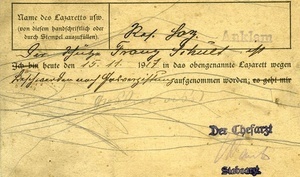 Name des Lazaretts usw.
(von diesem handschriftlich oder
durch Stempel auszufüllen).
Res. Laz. Anklam
Der
Ich bin heute den 15. 11. 1917 in das obengenannte Lazarett wegen
aufgenommen worden; es geht mir
Der Chefarzt
Stabsarzt